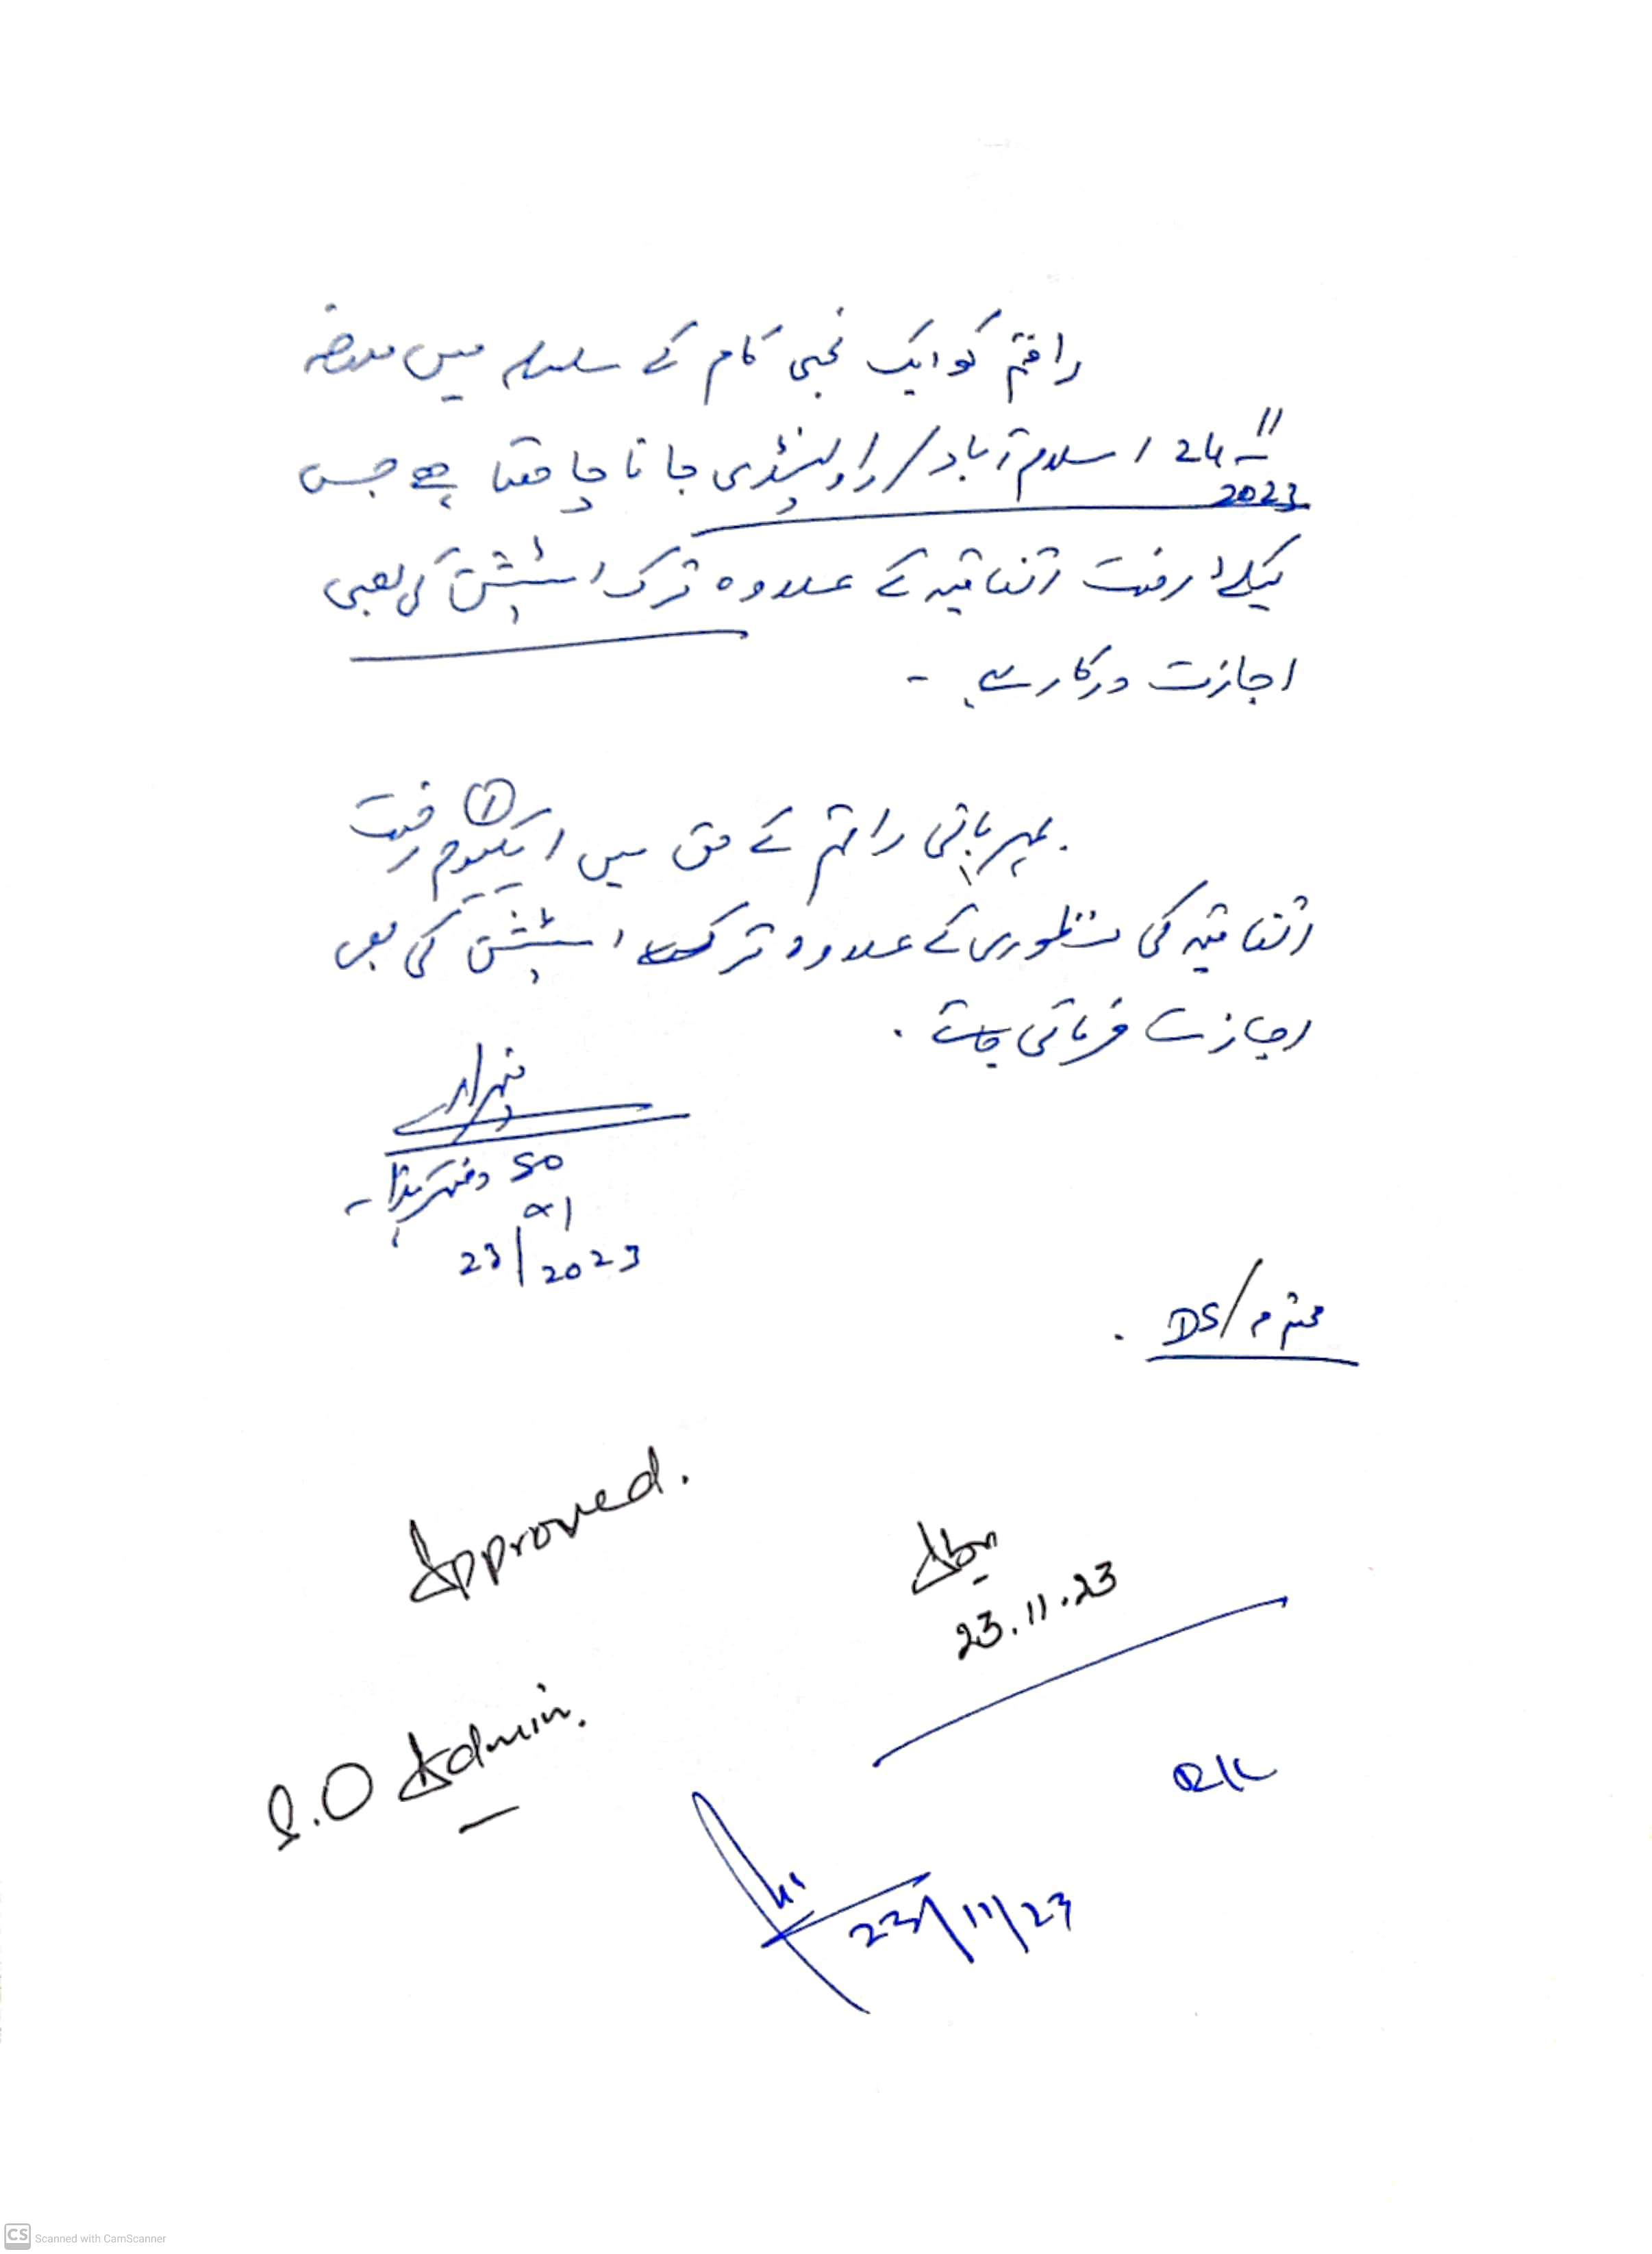 راقم کو ایک نجی کام کے سلسلہ میں مورخہ
24-11-2023 اسلام آباد/راولپنڈی جانا چاہتا ہے جس
کیلئے رخصت اتفاقیہ کے علاوہ ترک اسٹیشن کی بھی
اجازت درکار ہے -
بمہربانی راقم کے حق میں ایک یوم (1) رخصت
اتفاقیہ کی منظوری کے علاوہ ترک اسٹیشن کی بھی
اجازت فرمائی جائے .
SO دفتر ہذا -
23/xi/2023
محترم/DS .
Approved.
23.11.23
S.O Admin.
23/11/23
CS Scanned with CamScanner